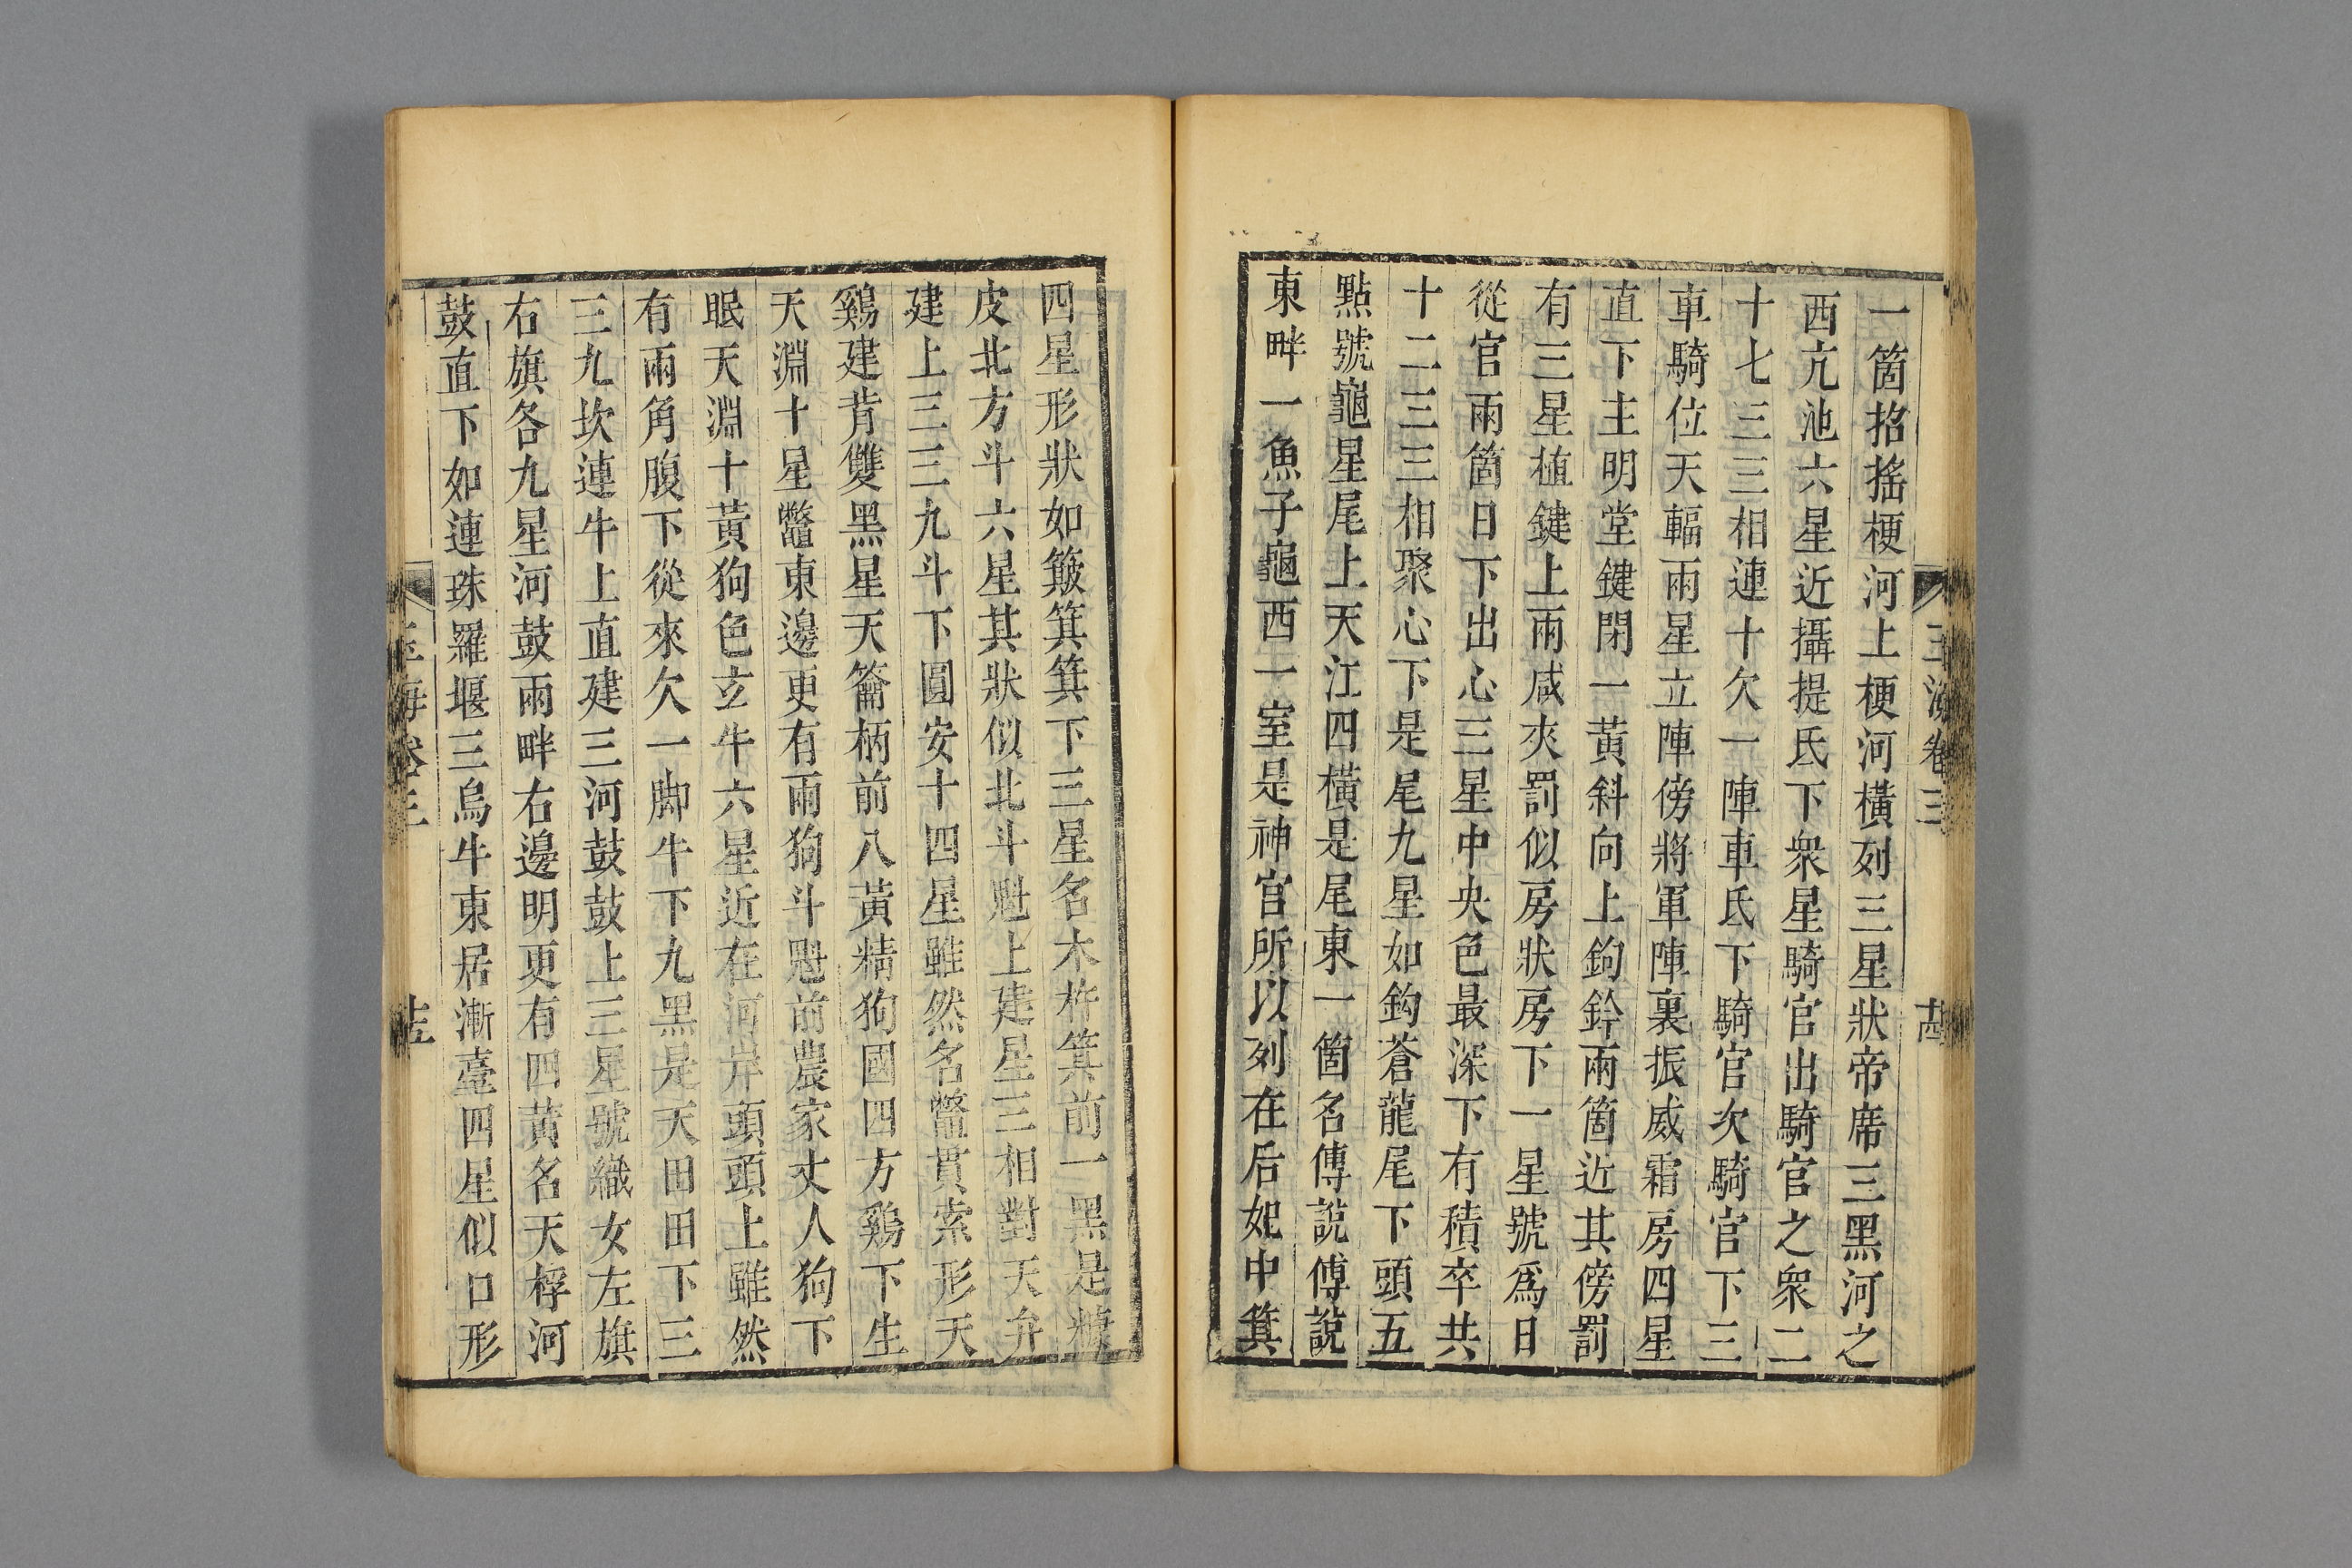 玉海卷三 十四
一箇招搖梗河上梗河橫列三星狀帝席三黑河之
西亢池六星近攝提氐下衆星騎官出騎官之衆二
十七三三相連十欠一陣車氐下騎官次騎官下三
車騎位天輻兩星立陣傍將軍陣裏振威霜房四星
直下主明堂鍵閉一黃斜向上鉤鈐兩箇近其傍罰
有三星植鍵上兩咸夾罰似房狀房下一星號爲日
從官兩箇日下出心三星中央色最深下有積卒共
十二三三相聚心下是尾九星如鈎蒼龍尾下頭五
點號龜星尾上天江四橫是尾東一箇名傅說傅說
東畔一魚子龜西一室是神宮所以列在后妃中箕
四星形狀如簸箕箕下三星名木杵箕前一黑是糠
皮北方斗六星其狀似北斗魁上建星三相對天弁
建上三三九斗下圓安十四星雖然名鼈貫索形天
鷄建背雙黑星天籥柄前八黃精狗國四方鷄下生
天淵十星鼈東邊更有兩狗斗魁前農家丈人狗下
眠天淵十黃狗色玄牛六星近在河岸頭頭上雖然
有兩角腹下從來欠一脚牛下九黑是天田田下三
三九坎連牛上直建三河鼓鼓上三星號織女左旗
右旗各九星河鼓兩畔右邊明更有四黃名天桴河
鼓直下如連珠羅堰三烏牛東居漸臺四星似口形
玉海卷三 十五